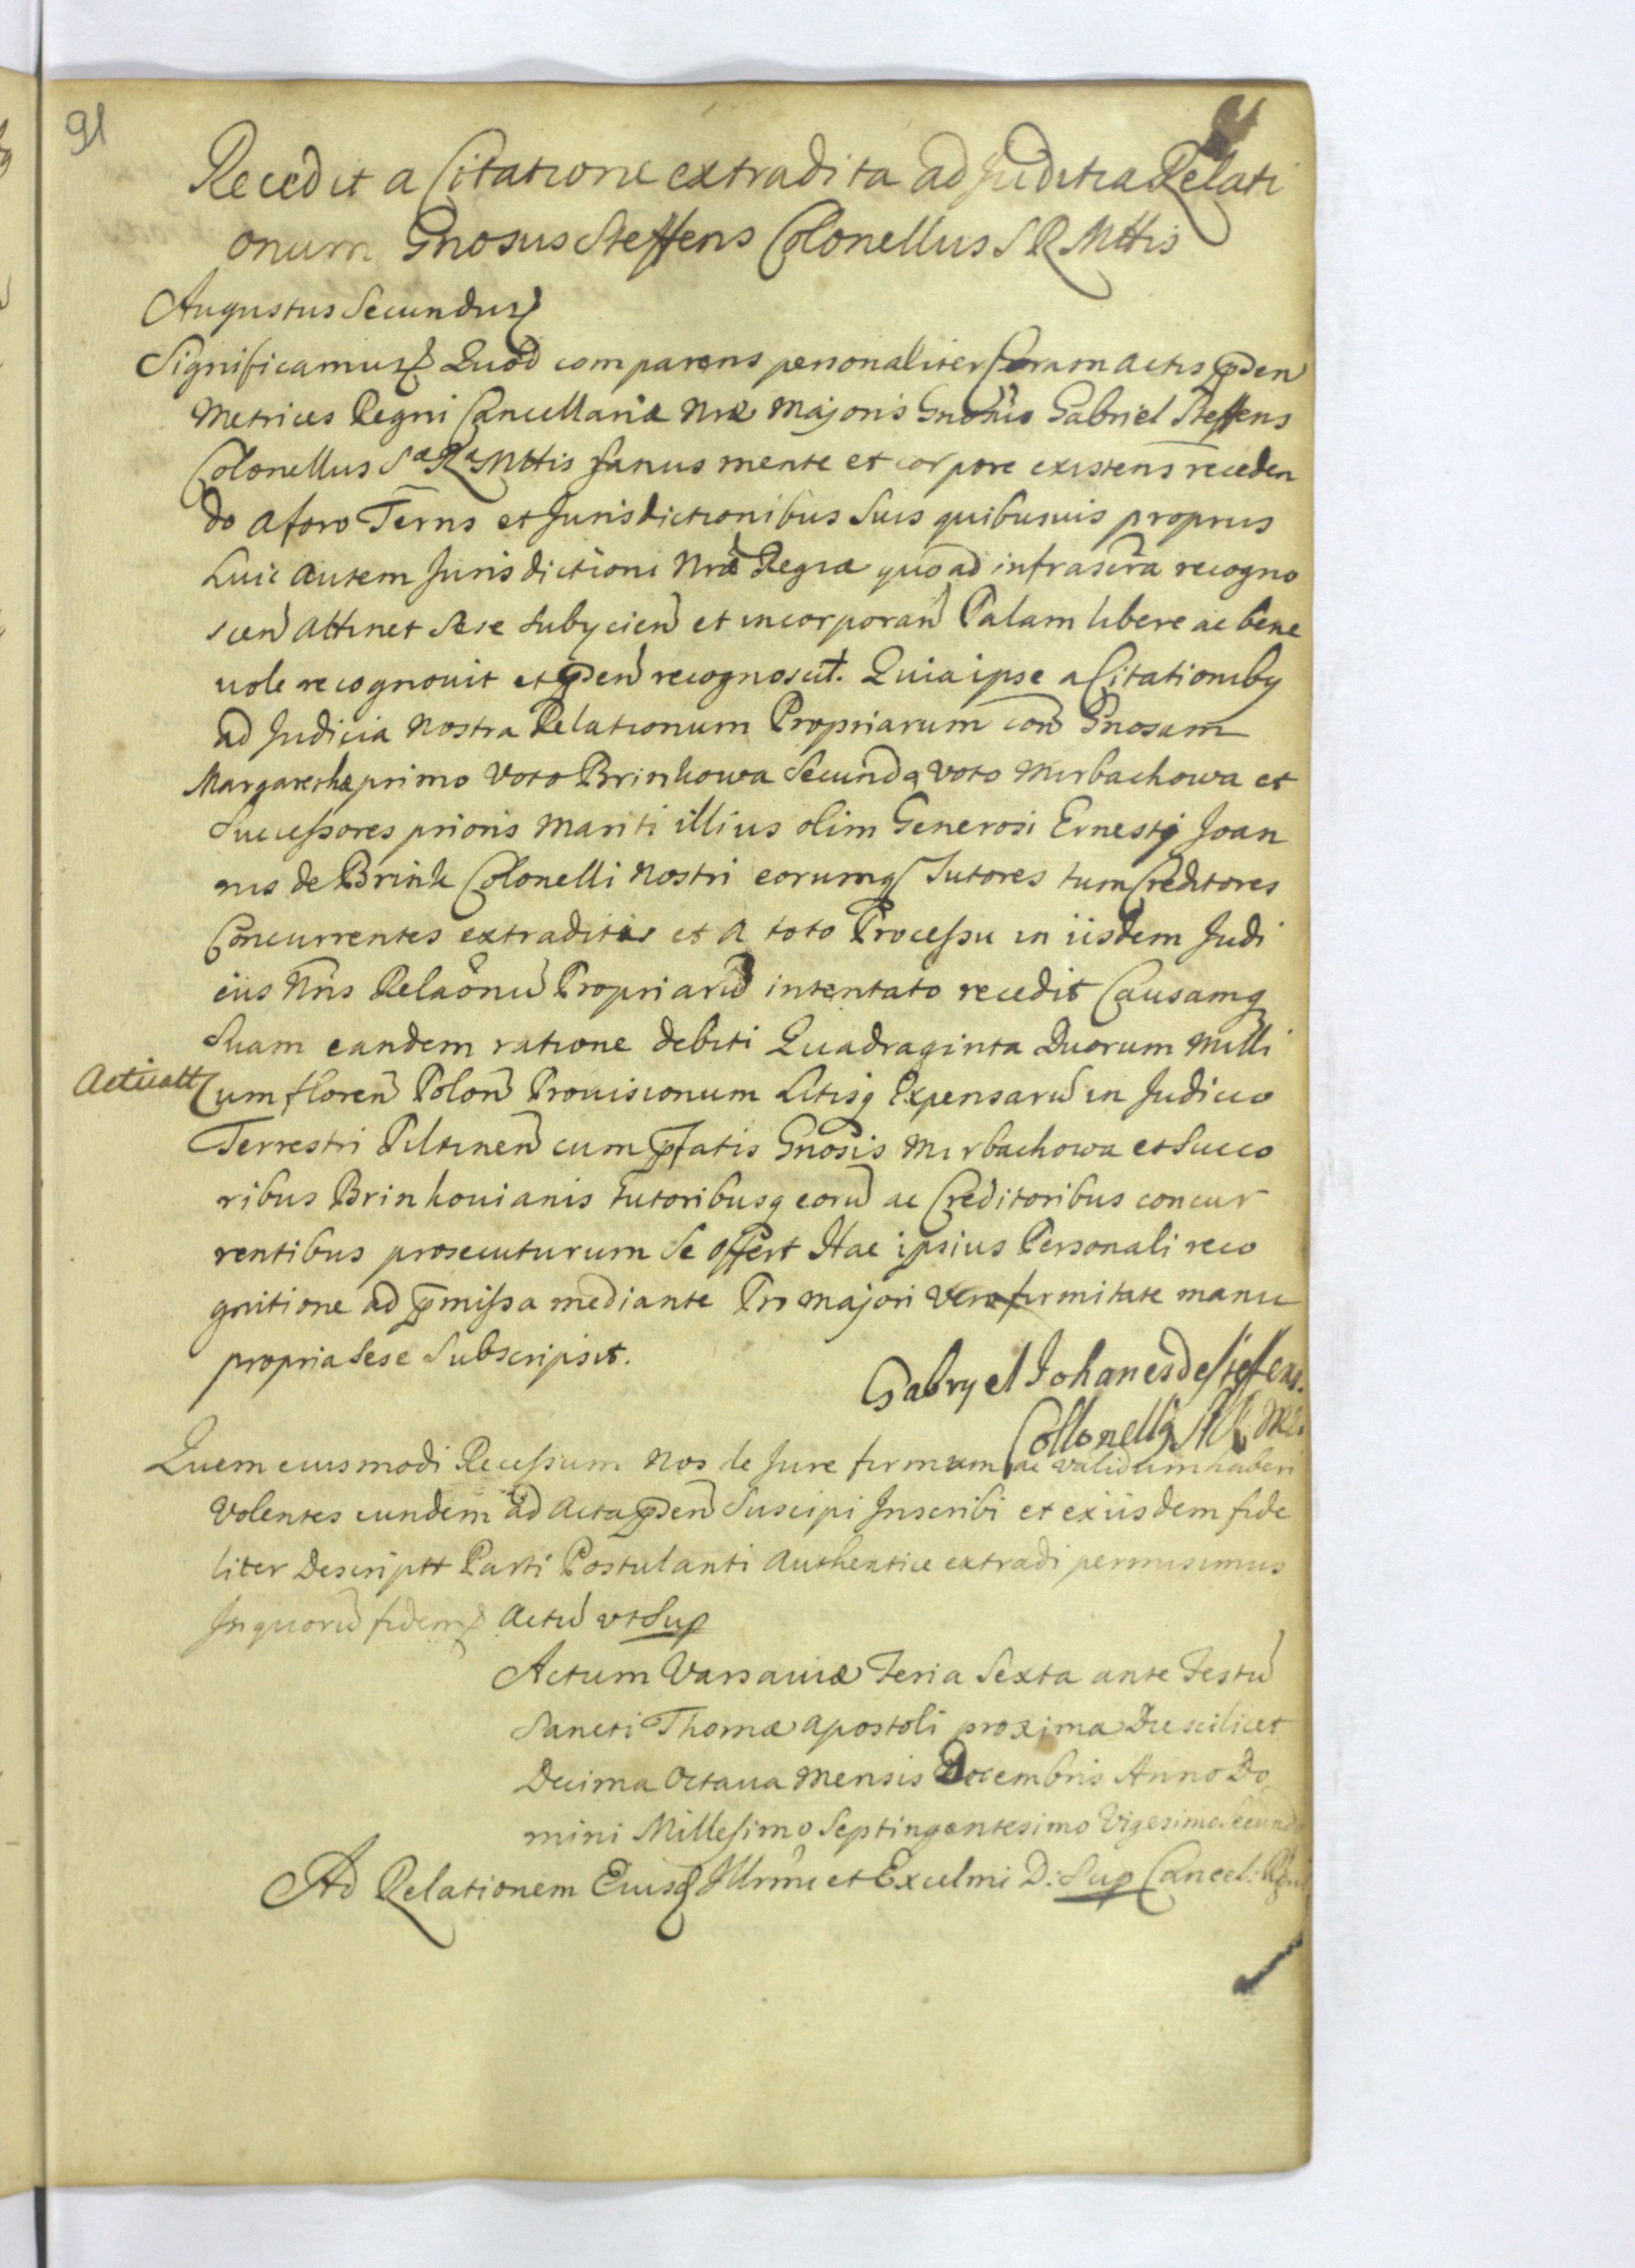 91
Recedit a Citatione extradita ad Juditia Relati
onum Gnosus Steffens Colonellus S R Mttis
Augustus Secundus
Significamus Quod comparens personaliter Coram actis pñden
Metrices Regni Cancellariæ Nræ Majoris Gnosus Gabriel Steffens
Colonellus Sa Ra Mttis sanus mente et corpore existens receden
do a foro Terris et Jurisdictionibus suis quibusuis proprijs
huic autem Jurisdictioni Nræ Regiæ quo ad infrascra recogno
scen attinet sese subijcien et incorporan Palam libere ac bene
uole recognouit et pñden recognoscit. Quia ipse a Citationiby
ad Judicia nostra Relationum Propriarum con Gnosam
Margaretha primo voto Brinkowa Secundo voto Mirbachowa et
Successores prioris mariti illius olim Generosi Ernesti Joan
nis de Brink Colonelli nostri eorumq Tutores tum Creditores
Concurrentes extraditis et a toto Processu in iisdem Judi
ciis Nris Relaonũ Propriarũ intentato recedit Causamq
suam eandem ratione debiti Quadraginta Duorum Milli
Acticatt um floren Polon Prouisionum Litisq Expensarũ in Judicio
Terrestri Piltinen cum pfatis Gnosis Mirbachowa et Succo
ribus Brinkouianis Tutoribusq eorũ ac Creditoribus concur
rentibus prosecuturum se offert Hac ipsius Personali reco
gnitione ad pmissa mediante Pro majori vero firmitate manu
propria sese subscripsit.
Gabryel Johanes de steffens.
Collonellq
Quem eiusmodi Recessum nos de Jure firmum ac validum haberi
volentes eundem ad Acta pñden Suscipi Inscribi et ex iisdem fide
liter Descriptt Parti Postulanti Authentice extradi permisimus
In quorũ fidem Actũ vt Sup
Actum Varsauiæ Feria Sexta ante Festũ
Sancti Thomæ Apostoli proxima Die scilicet
Decima Octaua mensis Decembris Anno Do
mini Millesimo Septingentesimo Vigesimo Secundo
Ad Relationem Eiusd Illrmi et Excelmi D: Sup Cancel: Rgni